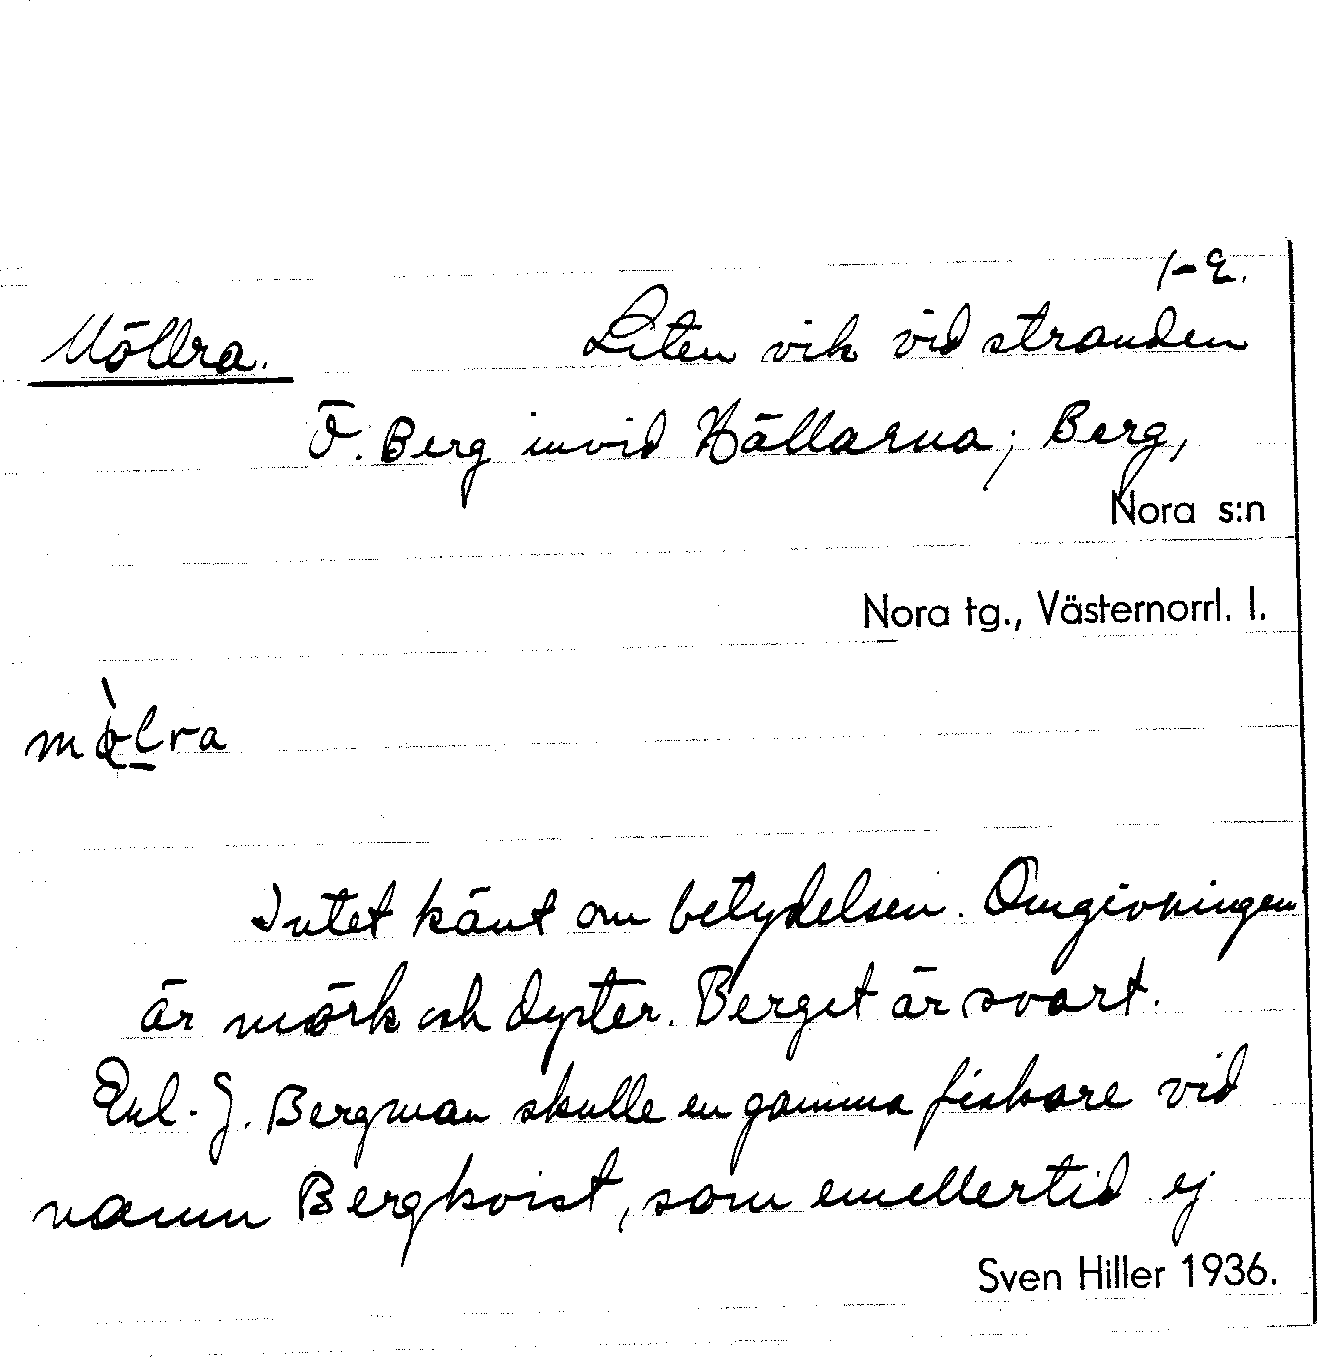 1-2.
Möllra. Liten vik vid stranden
Ö. Berg invid Hällarna; Berg,
Nora s:n
Nora tg., Västernorrl. l.
mòlra
Intet känt om betydelsen. Omgivningen
är mörk och dyster. Berget är svart.
Enl. J. Bergman skulle en gamma fiskare vid
namn Bergkvist, som emellertid ej
Sven Hiller 1936.